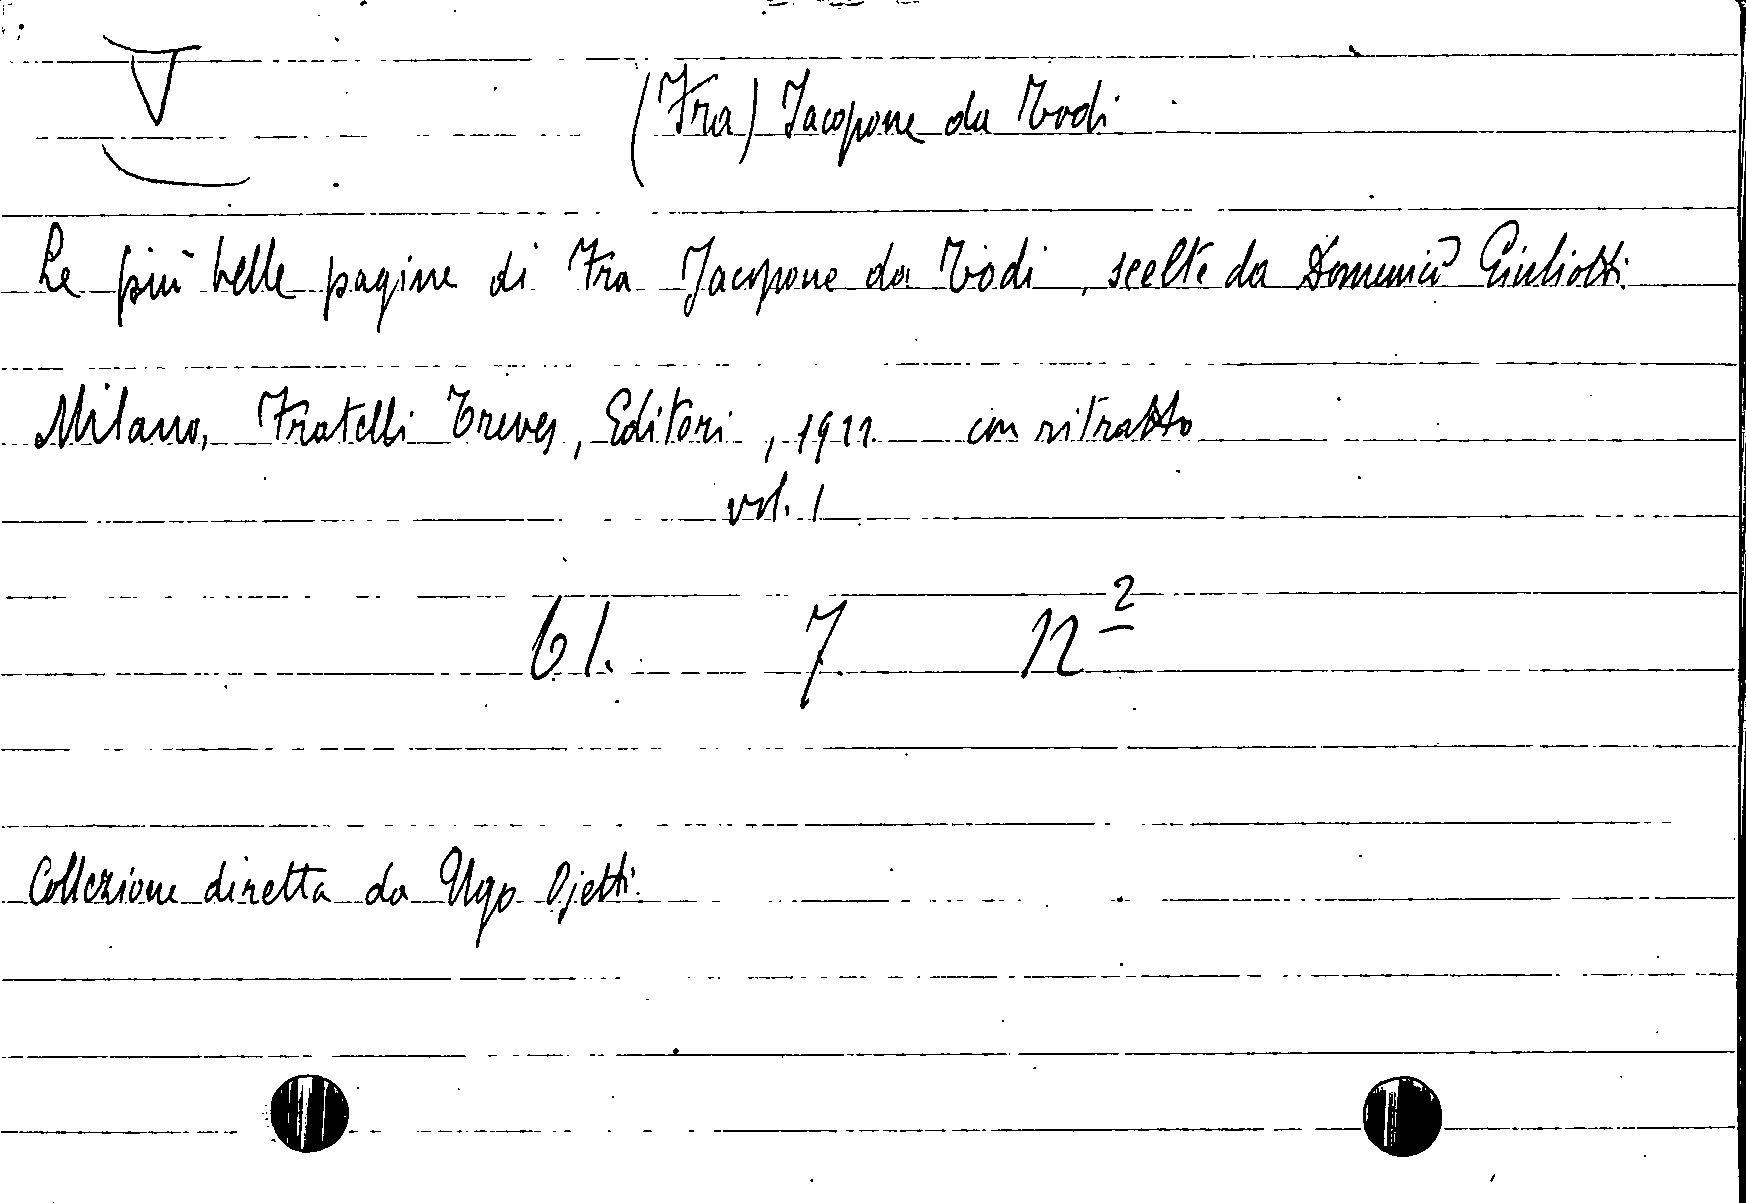 V
(Fra) Jacopone da Todi
Le più belle pagine di Fra Jacopone da Todi, scelte da Domenico Giuliotti.
Milano, Fratelli Treves, Editori, 1922 con ritratto
vol. 1
61. 7. 12 2
Collezione diretta da Ugo Ojetti.